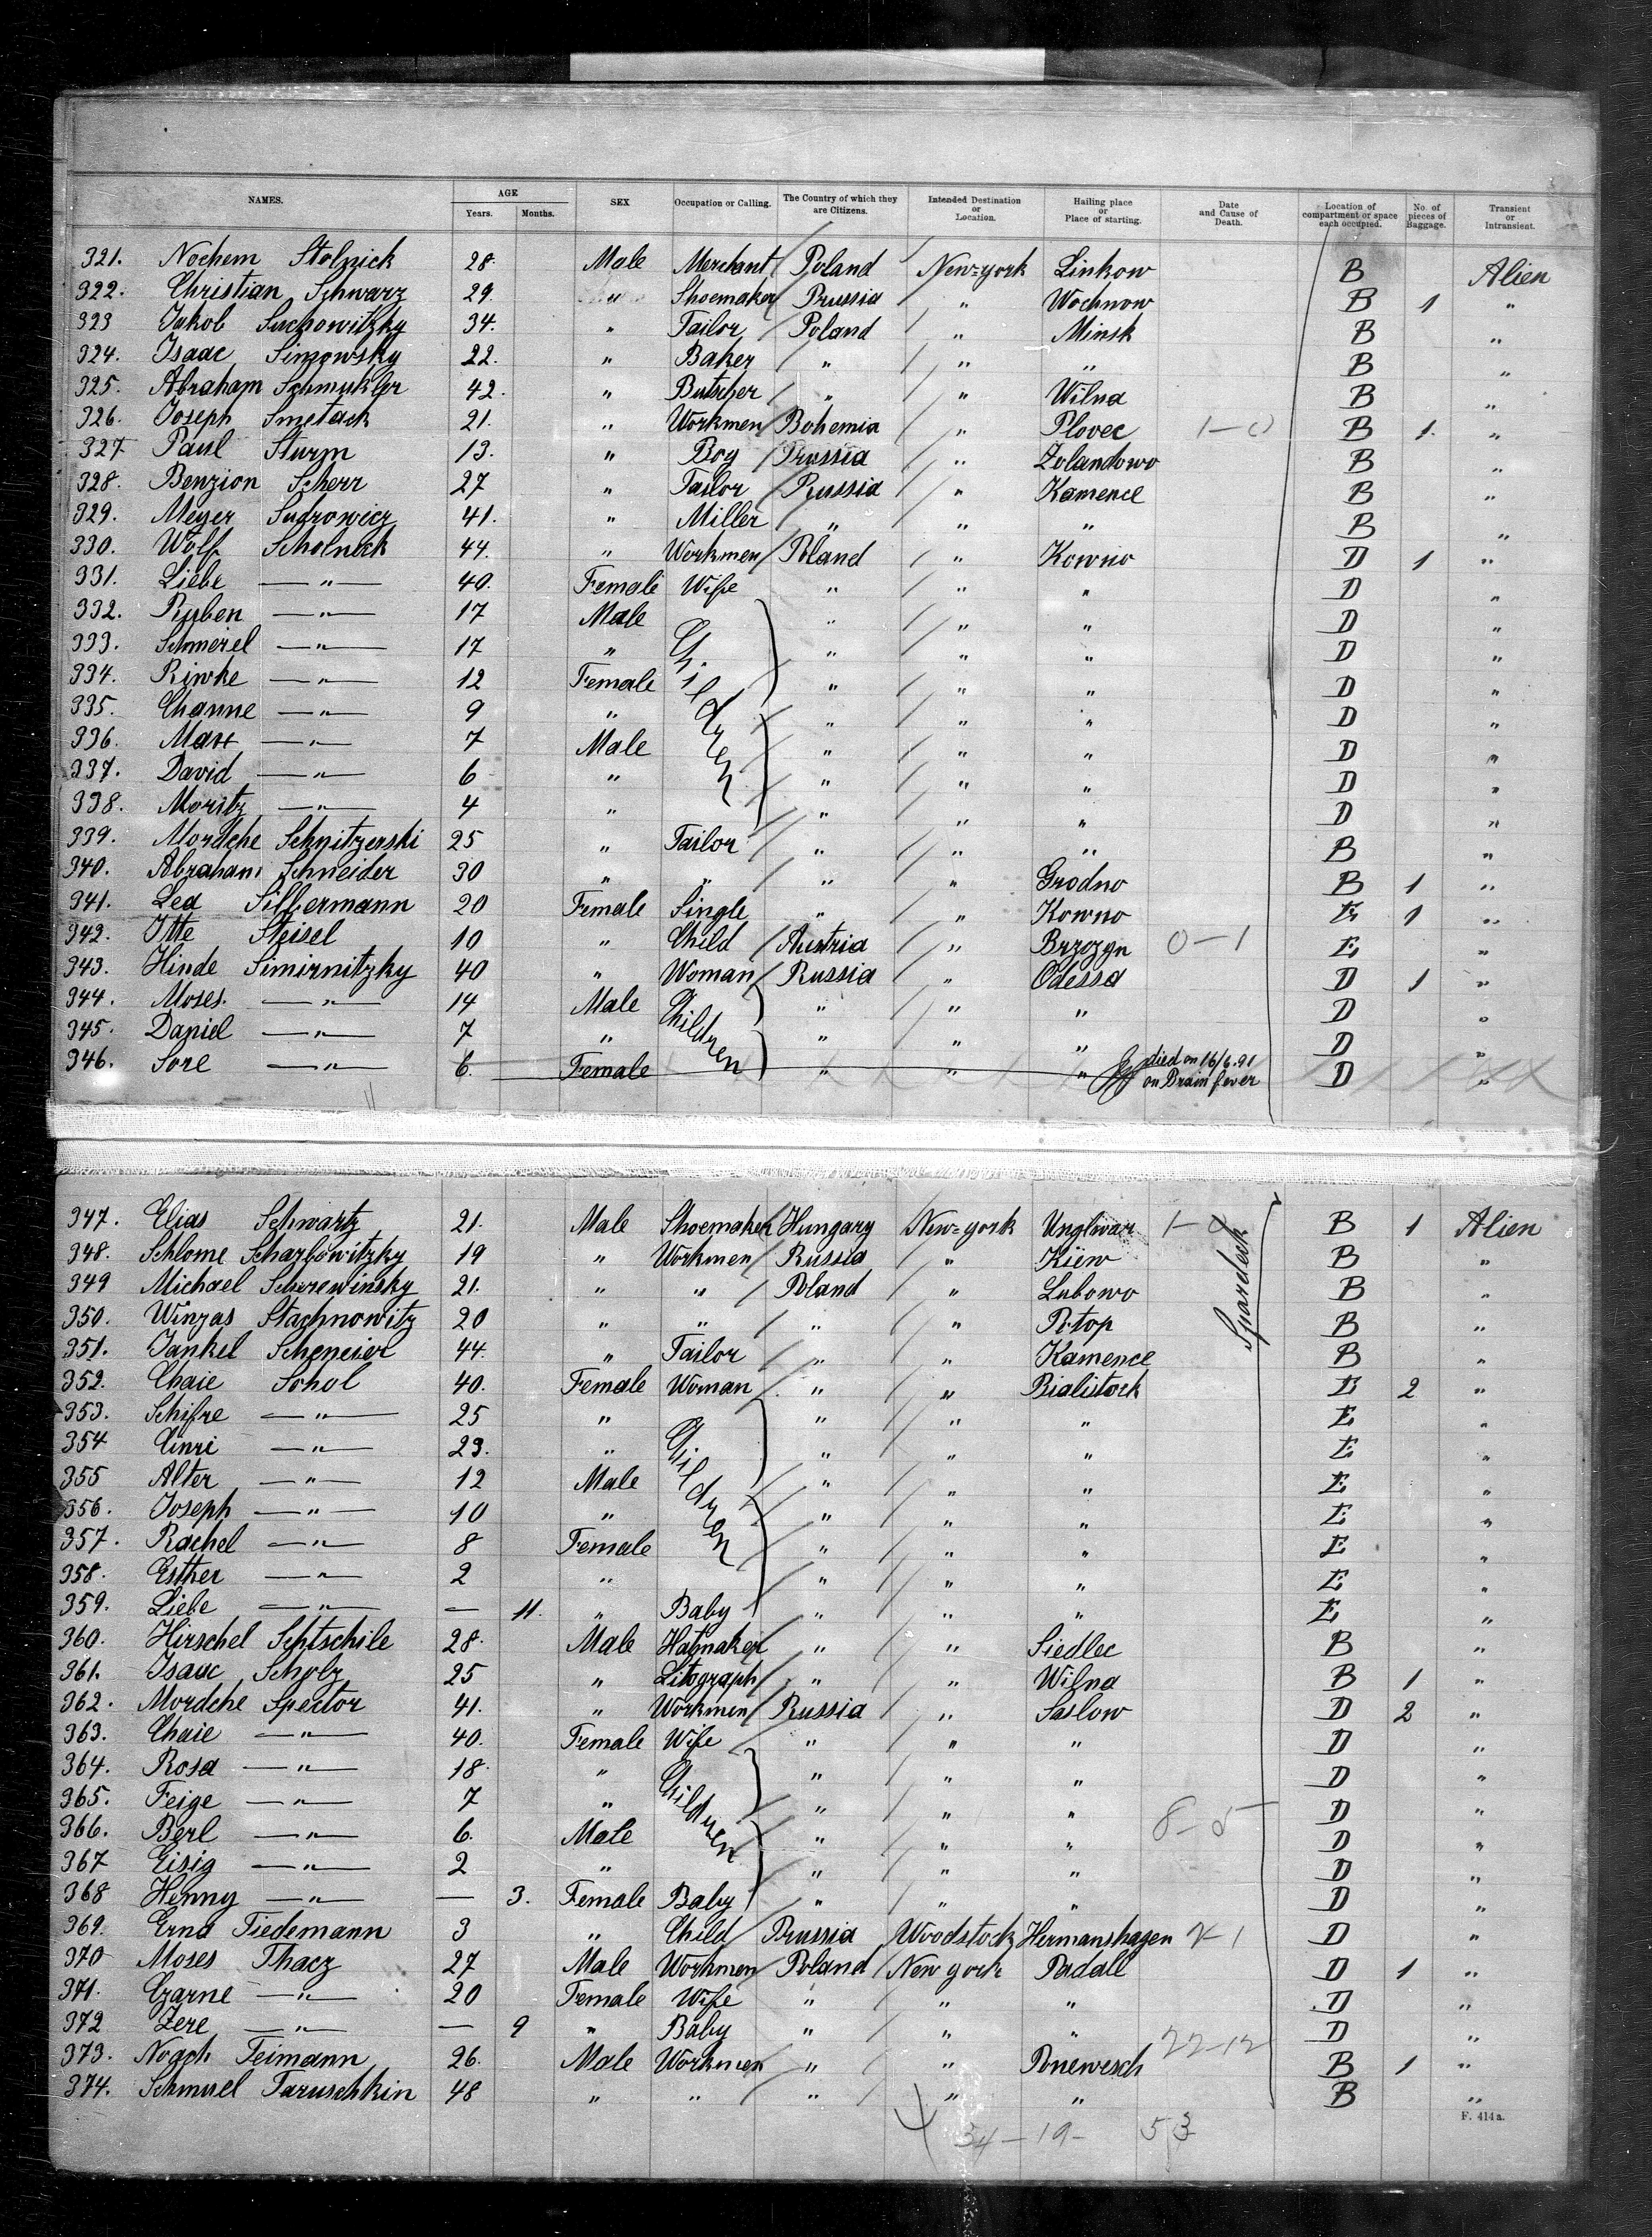 NAMES. AGE Years. Months. SEX Occupation or Calling. The Country of which they are Citizens. Intended Destination or Location. Hailing place or Place of starting. Date and Cause of Death. Location of compartment or space each occupied. No. of pieces of Baggage. Transient or Intransient.
321. Nochem Stolnick 28. Male Merchant Poland New=york Linkow B Alien
322. Christian Schwarz 29. " Shoemaker Prussia " Wochnow B 1 "
323 Jakob Suchowitzky 34. " Tailor Poland " Minsk B "
324. Isaac Simowsky 22. " Baker " " " B "
325. Abraham Schmukler 42. " Butscher " " Wilna B "
326. Joseph Smetack 21. " Workmen Bohemia " Plovec 1-0 B 1. "
327. Paul Sturm 13. " Boy Prussia " Zolandowo B "
328. Benzion Scherr 27 " Tailor Russia " Kamence B "
329. Meyer Sudrowicz 41. " Miller " " " B "
330. Wolf Scholnick 44. " Workmen Poland " Kowno D 1 "
331. Liebe —"— 40. Female Wife " " " D "
332. Ruben —"— 17 Male Children " " " D "
333. Schmerel —"— 17 " " " " D "
334. Riwke —"— 12 Female " " " D "
335. Channe —"— 9 " " " " D "
336. Max —"— 7 Male " " " D "
337. David —"— 6 " " " " D "
338. Moritz —"— 4 " " " " D "
339. Mordche Schnitzerski 25 " Tailor " " " B "
340. Abraham Schneider 30 " " " " Grodno B 1 "
341. Lea Silbermann 20 Female Single " " Kowno E 1 "
342. Itte Steisel 10 " Child Austria " Brzozyn 0-1 E "
343. Hinde Simirnitzky 40 " Woman Russia " Odessa D 1 "
344. Moses —"— 14 Male Children " " " D "
345. Daniel —"— 7 " " " " D "
346. Sore —"— 6. Female " " " died on 16/6.91 on Brain fever D "
347. Elias Schwartz 21. Male Shoemaker Hungary New=york Unghvar 1-0 B 1 Alien
348. Schlome Scharbowitzky 19 " Workmen Russia " Kiew B "
349 Michael Scherewinsky 21. " " Poland " Lubowo B "
350. Winzas Stachnowitz 20 " " " " B "
351. Jankel Schneier 44. " Tailor " " Kamence B "
352. Chaie Sokol 40. Female Woman " " Bialistock E 2 "
353. Schifre —"— 25 " Children " " " E "
354 —"— 23. " " " " E "
355 Alter —"— 12 Male " " " E "
356. Joseph —"— 10 " " " " E "
357. Rachel —"— 8 Female " " " E "
358. Esther —"— 2 " " " " E "
359. Liebe —"— — 11. " Baby " " " E "
360. Hirschel Schtschile 28. Male Hatmaker " " Siedlec B "
361. Isaac Scholz 25 " Litograph " " Wilna B 1 "
362. Mordche Spector 41. " Workmen Russia " Saslow D 2 "
363. Chaie —"— 40. Female Wife " " " D "
364. Rosa —"— 18. " Children " " " D "
365. Feige —"— 7 " " " " D "
366. Berl —"— 6. Male " " " 8-5 D "
367 Eisig —"— 2 " " " " D "
368 Henny —"— — 3. Female Baby " " " D "
369. Erna Tiedemann 3 " Child Prussia Woodstock Hermanshagen D "
370 Moses Thacz 27 Male Workmen Poland New york Podale D 1 "
371. Czarne —"— 20 Female Wife " " " D "
372 Zere —"— — 9 " Baby " " " D "
373. Noach Teimann 26. Male Workmen " " Ponewesch 22-12 B 1 "
374. Schmuel Taruschkin 48 " " " " " B "
34-19- 53
F. 414a.